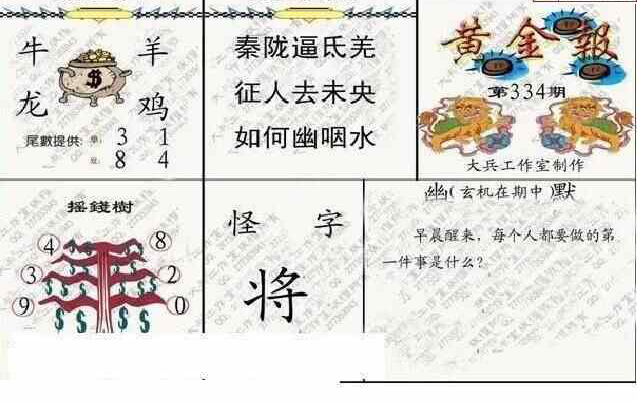 牛 羊
龙 鸡
尾數提供: 单: 3 1
双: 8 4
秦陇逼氐羌
征人去未央
如何幽咽水
黄金報
第334期
大兵工作室制作
摇錢樹
4 8
3 2
9 0
怪 字
将
幽(玄机在期中)默
早晨醒来，每个人都要做的第
一件事是什么？